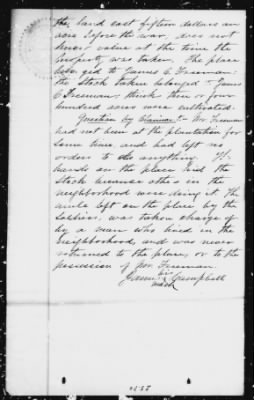 the land cost fifteen dollars an
acre before the war, does not
know value at the time the
property was taken. The place
belonged to James C. Freeman.
the stock taken belonged to James
C Freeman, thinks three or four
hundred acres were cultivated.
Question by Claimant - Mr. Freeman
had not been at the plantation for
some time, and had left no
orders to do anything. The
hands on the place hid the
stock because others in the
neighborhood were doing it. The
mule left on the place by the
soldiers, was taken charge of
by a man who lived in the
neighborhood, and was never
returned to the place, or to the
possession of Mr. Freeman.
his
James Campbell
mark